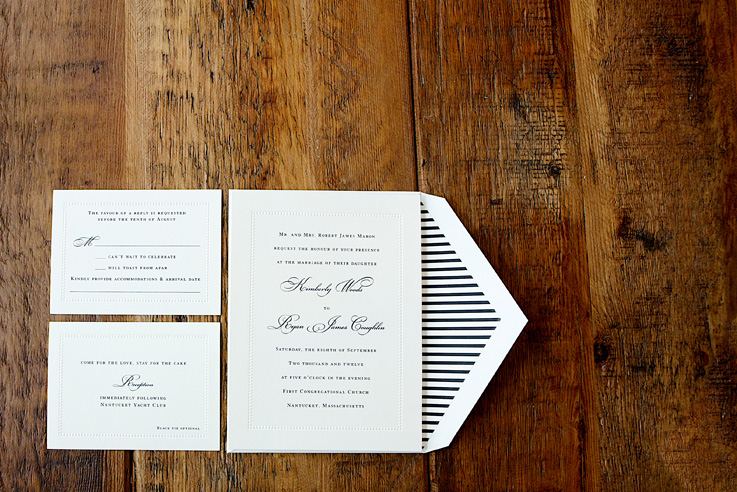 The favour of a reply is requested
before the tenth of August
M
can't wait to celebrate
will toast from afar
Kindly provide accommodations & arrival date
come for the love, stay for the cake
Reception
immediately following
Nantucket Yacht Club
Black tie optional
Mr. and Mrs. Robert James Mahon
request the honour of your presence
at the marriage of their daughter
Kimberly Woods
to
Ryan James Coughlin
Saturday, the eighth of September
Two thousand and twelve
at five o'clock in the evening
First Congregational Church
Nantucket, Massachusetts